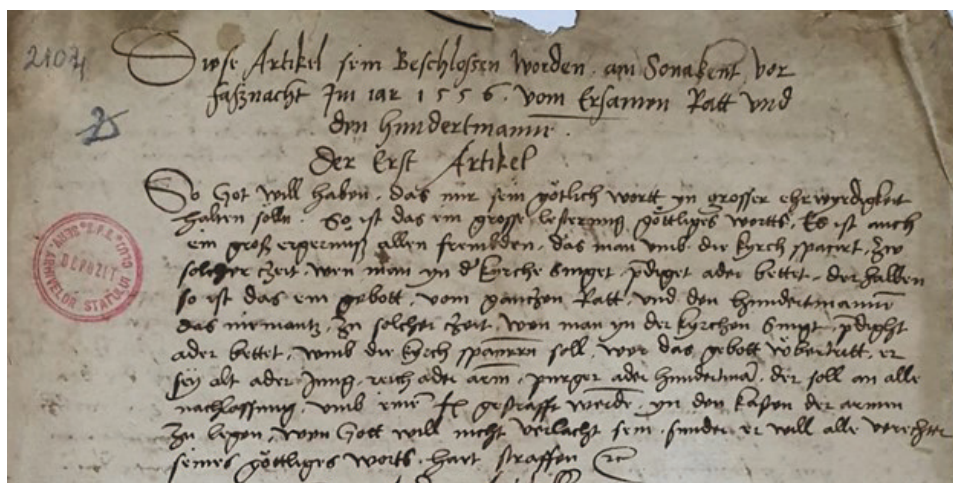 2104
Diese Artikel sein Beschlossen Worden, am Sonabent vor
faßnacht Im iar 1556. vom Ersamen Ratt vnd
den hundertmannen.
Der Erst Artikel
So Got will haben, das mir sein götlich wortt yn grosser ehrwyrdigkeit
halten solln. So ist das ein grosse lesterung göttliges wortts, Es ist auch
ein groß ergernuß allen frembden, das man vmb die kyrch spacirt, zw
solcher czeit, wen man yn d' kyrche singet, pdiget ader bettet, der halben
so ist das ein gebott, vom ganczen Ratt, vnd den hundertmannen
das niemantz, zu solcher czeit, wen man yn der kyrchen singt, pdight
ader bettet, vmb die kyrch spacirn soll, wer das gebott vbertritt, er
sey alt ader Jung, reich ader arm, purger ader hundertman, der soll an alle
nachlossung, vmb eine fl gestrafft werde, yn den kasten der armen
zu legen, wen Gott will nicht verlacht sein, sunder er will alle verechter
seines göttliges worts, hart straffen
CLUJ * SERV. ARHIVELOR STATULUI
DEPOZIT